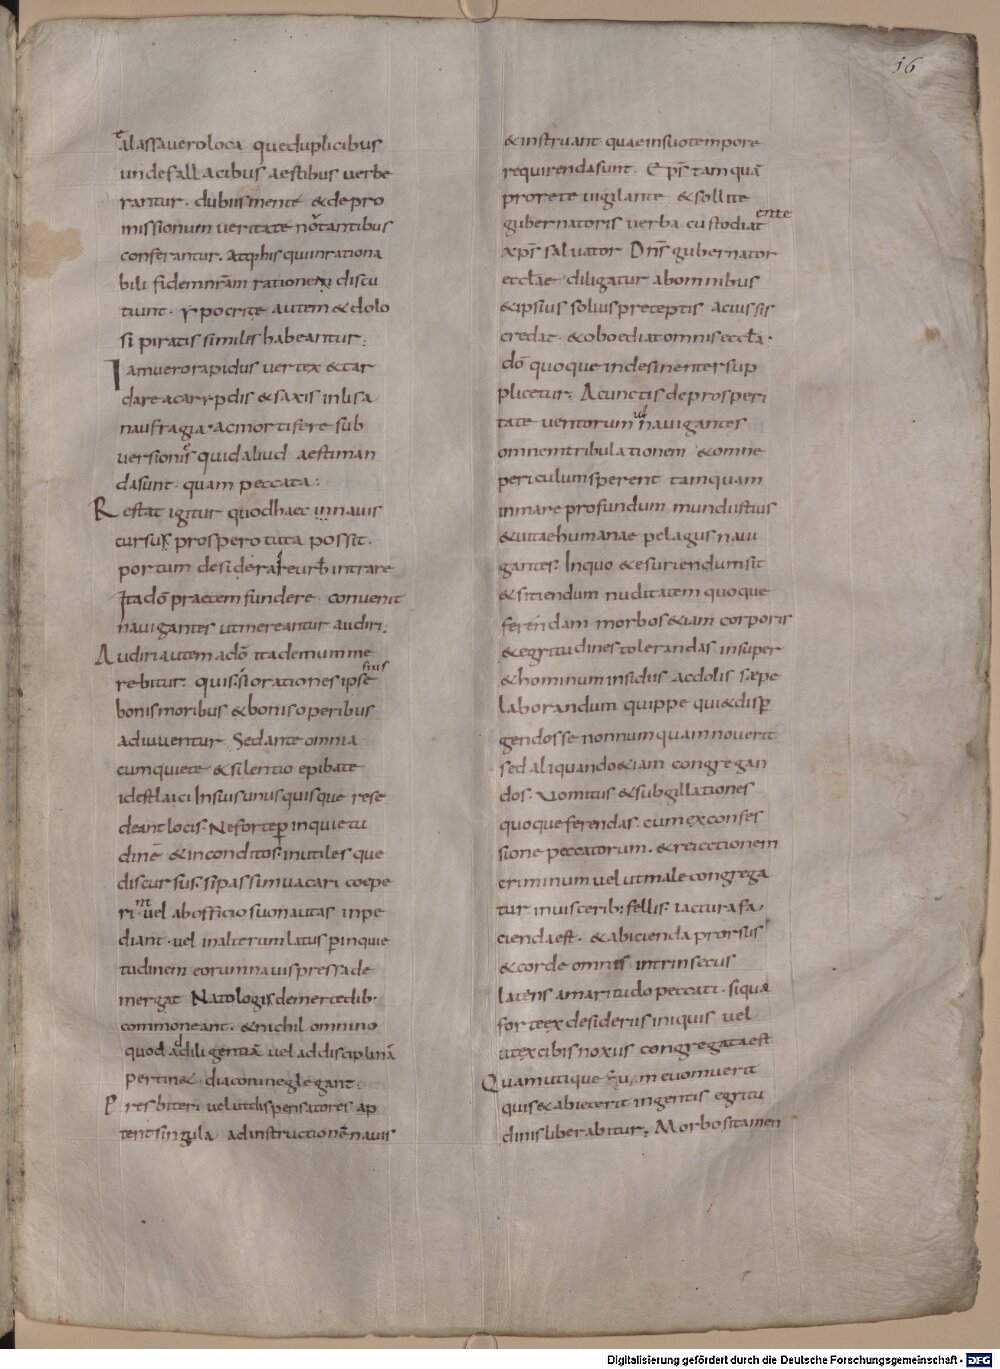 16
alassavero loca que duplicibus
undefallacibus aestibus verbe
rantur. dubiis mente & de pro
missionum veritate nutantibus
conferantur. Atq; his qui inrationa
bili fidem nr̄am rationem discu
tiunt. Ypocrite autem & dolo
si piratis similes habeantur;
Iam vero rapidus vertex & tar
dare a carrpdis & saxis inlisa
naufragia. ac mortifere sub
versionis quid aliud aestiman
da sunt. quam peccata:
Restat igitur quod haec in navis
cursus prospero tuta possit.
portum desiderare urb̄ intrare
Ita dō praecem fundere convenit
navigantes ut mereantur audiri;
Audiri autem a dō ita demum me
rebitur. quis. si orationes ipse
sius
bonis moribus & bonis operibus
adiuventur. Sed ante omnia
cum quiete & silentio epibate
id est laici In suis unus quisque rese
deant locis. Ne forte p̄ inquietu
dinē & inconditos. inutiles que
discursus. si passim vacari coepe
rint vel ab officio suo nautas inpe
diant. vel in alterum latus p̄ inquie
tudinem eorum navis pressa de
mergat Natologis de mercedib;
commoneant. & nichil omnino
quod ad diligentiā vel ad disciplinā
pertin&. diaconi neglegant.
Presbiteri velut dispensatores ap
tent singula ad instructionē navis
& instruant quae in suo tempore
requirenda sunt. Ep̄s tamquā
prorete vigilante & sollite
gubernatoris verba custodiat
ente
xp̄s salvator Dn̄s gubernator
eccl̄ae diligatur ab omnibus
& ipsius solius preceptis ac iussis
credat. & oboediat omnis eccl̄a.
dō quoque indesinenter sup
plicetur; A cunctis de prosperi
tate ventorum ut navigantes
omnem tribulationem & omne
periculum sperent tamquam
in mare profundum mundi istius
& vitae humanae pelagus navi
gantes: In quo & esuriendum sit
& sitiendum nuditatem quoque
ferendam morbos &iam corporis
& egritudines tolerandas. insuper
& hominum insidiis ac dolis saepe
laborandum quippe qui & disp̄
gendos se nonnumquam noverit
sed aliquando &iam congregan
dos. Vomitus & subgillationes
quoque ferendas. cum ex confes
sione peccatorum. & reiectionem
criminum vel ut male congrega
tur in viscerib; fellis. iactura fa
cienda est. & abicienda prorsus
& corde omnis intrinsecus
latens amaritudo peccati. si qua
forte ex desideriis iniquis vel
ut ex cibis noxiis congregata est
Quam utique cum evomuerit
quis & abiecerit ingentis egritu
dinis liberabitur; Morbos tamen
Digitalisierung gefördert durch die Deutsche Forschungsgemeinschaft - DFG